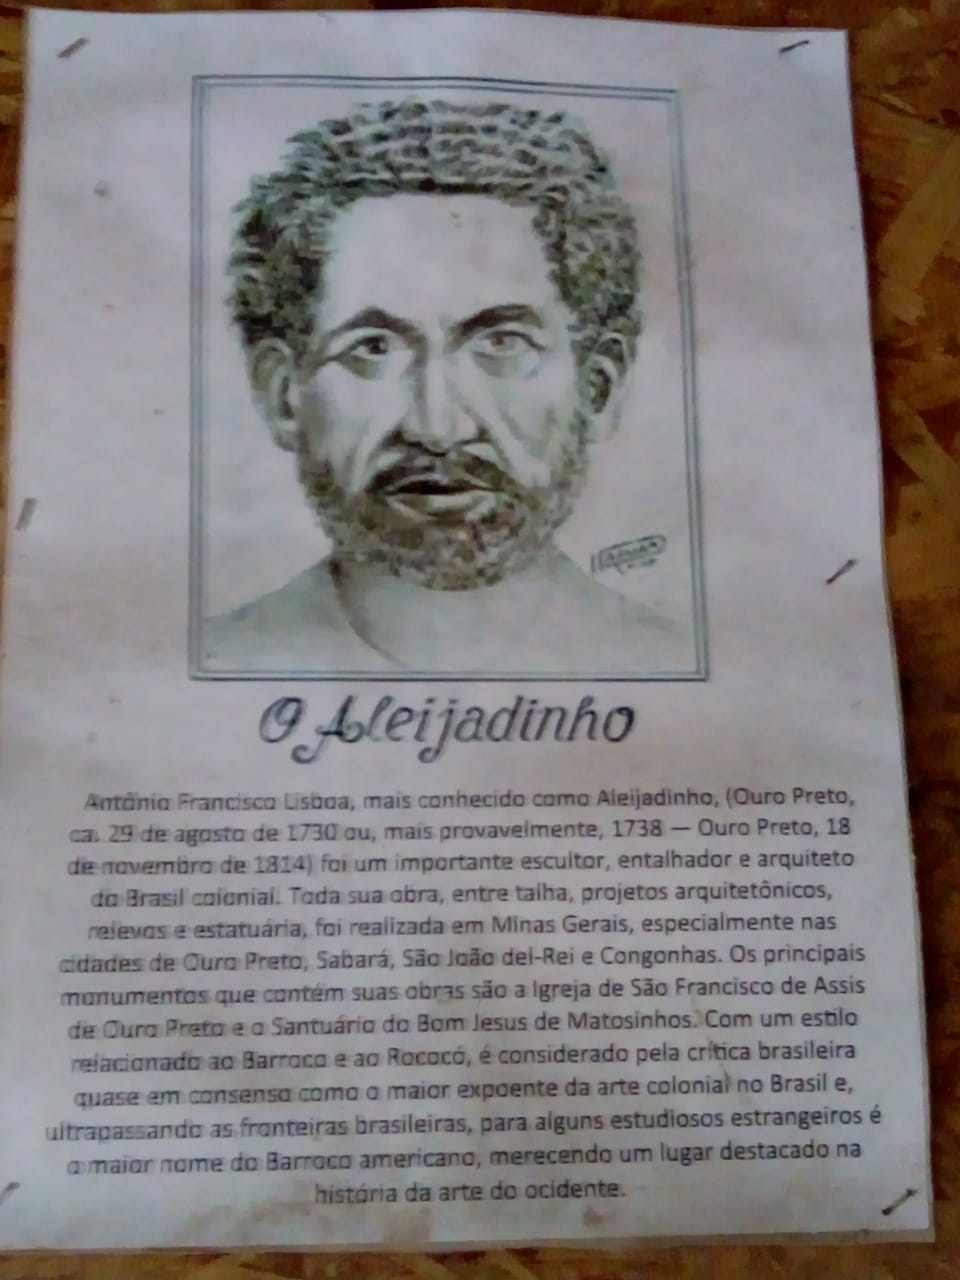 O Aleijadinho
Antônio Francisco Lisboa, mais conhecido como Aleijadinho, (Ouro Preto,
ca. 29 de agosto de 1730 ou, mais provavelmente, 1738 — Ouro Preto, 18
de novembro de 1814) foi um importante escultor, entalhador e arquiteto
do Brasil colonial. Toda sua obra, entre talha, projetos arquitetônicos,
relevos e estatuária, foi realizada em Minas Gerais, especialmente nas
cidades de Ouro Preto, Sabará, São João del-Rei e Congonhas. Os principais
monumentos que contém suas obras são a Igreja de São Francisco de Assis
de Ouro Preto e o Santuário do Bom Jesus de Matosinhos. Com um estilo
relacionado ao Barroco e ao Rococó, é considerado pela crítica brasileira
quase em consenso como o maior expoente da arte colonial no Brasil e,
ultrapassando as fronteiras brasileiras, para alguns estudiosos estrangeiros é
o maior nome do Barroco americano, merecendo um lugar destacado na
história da arte do ocidente.